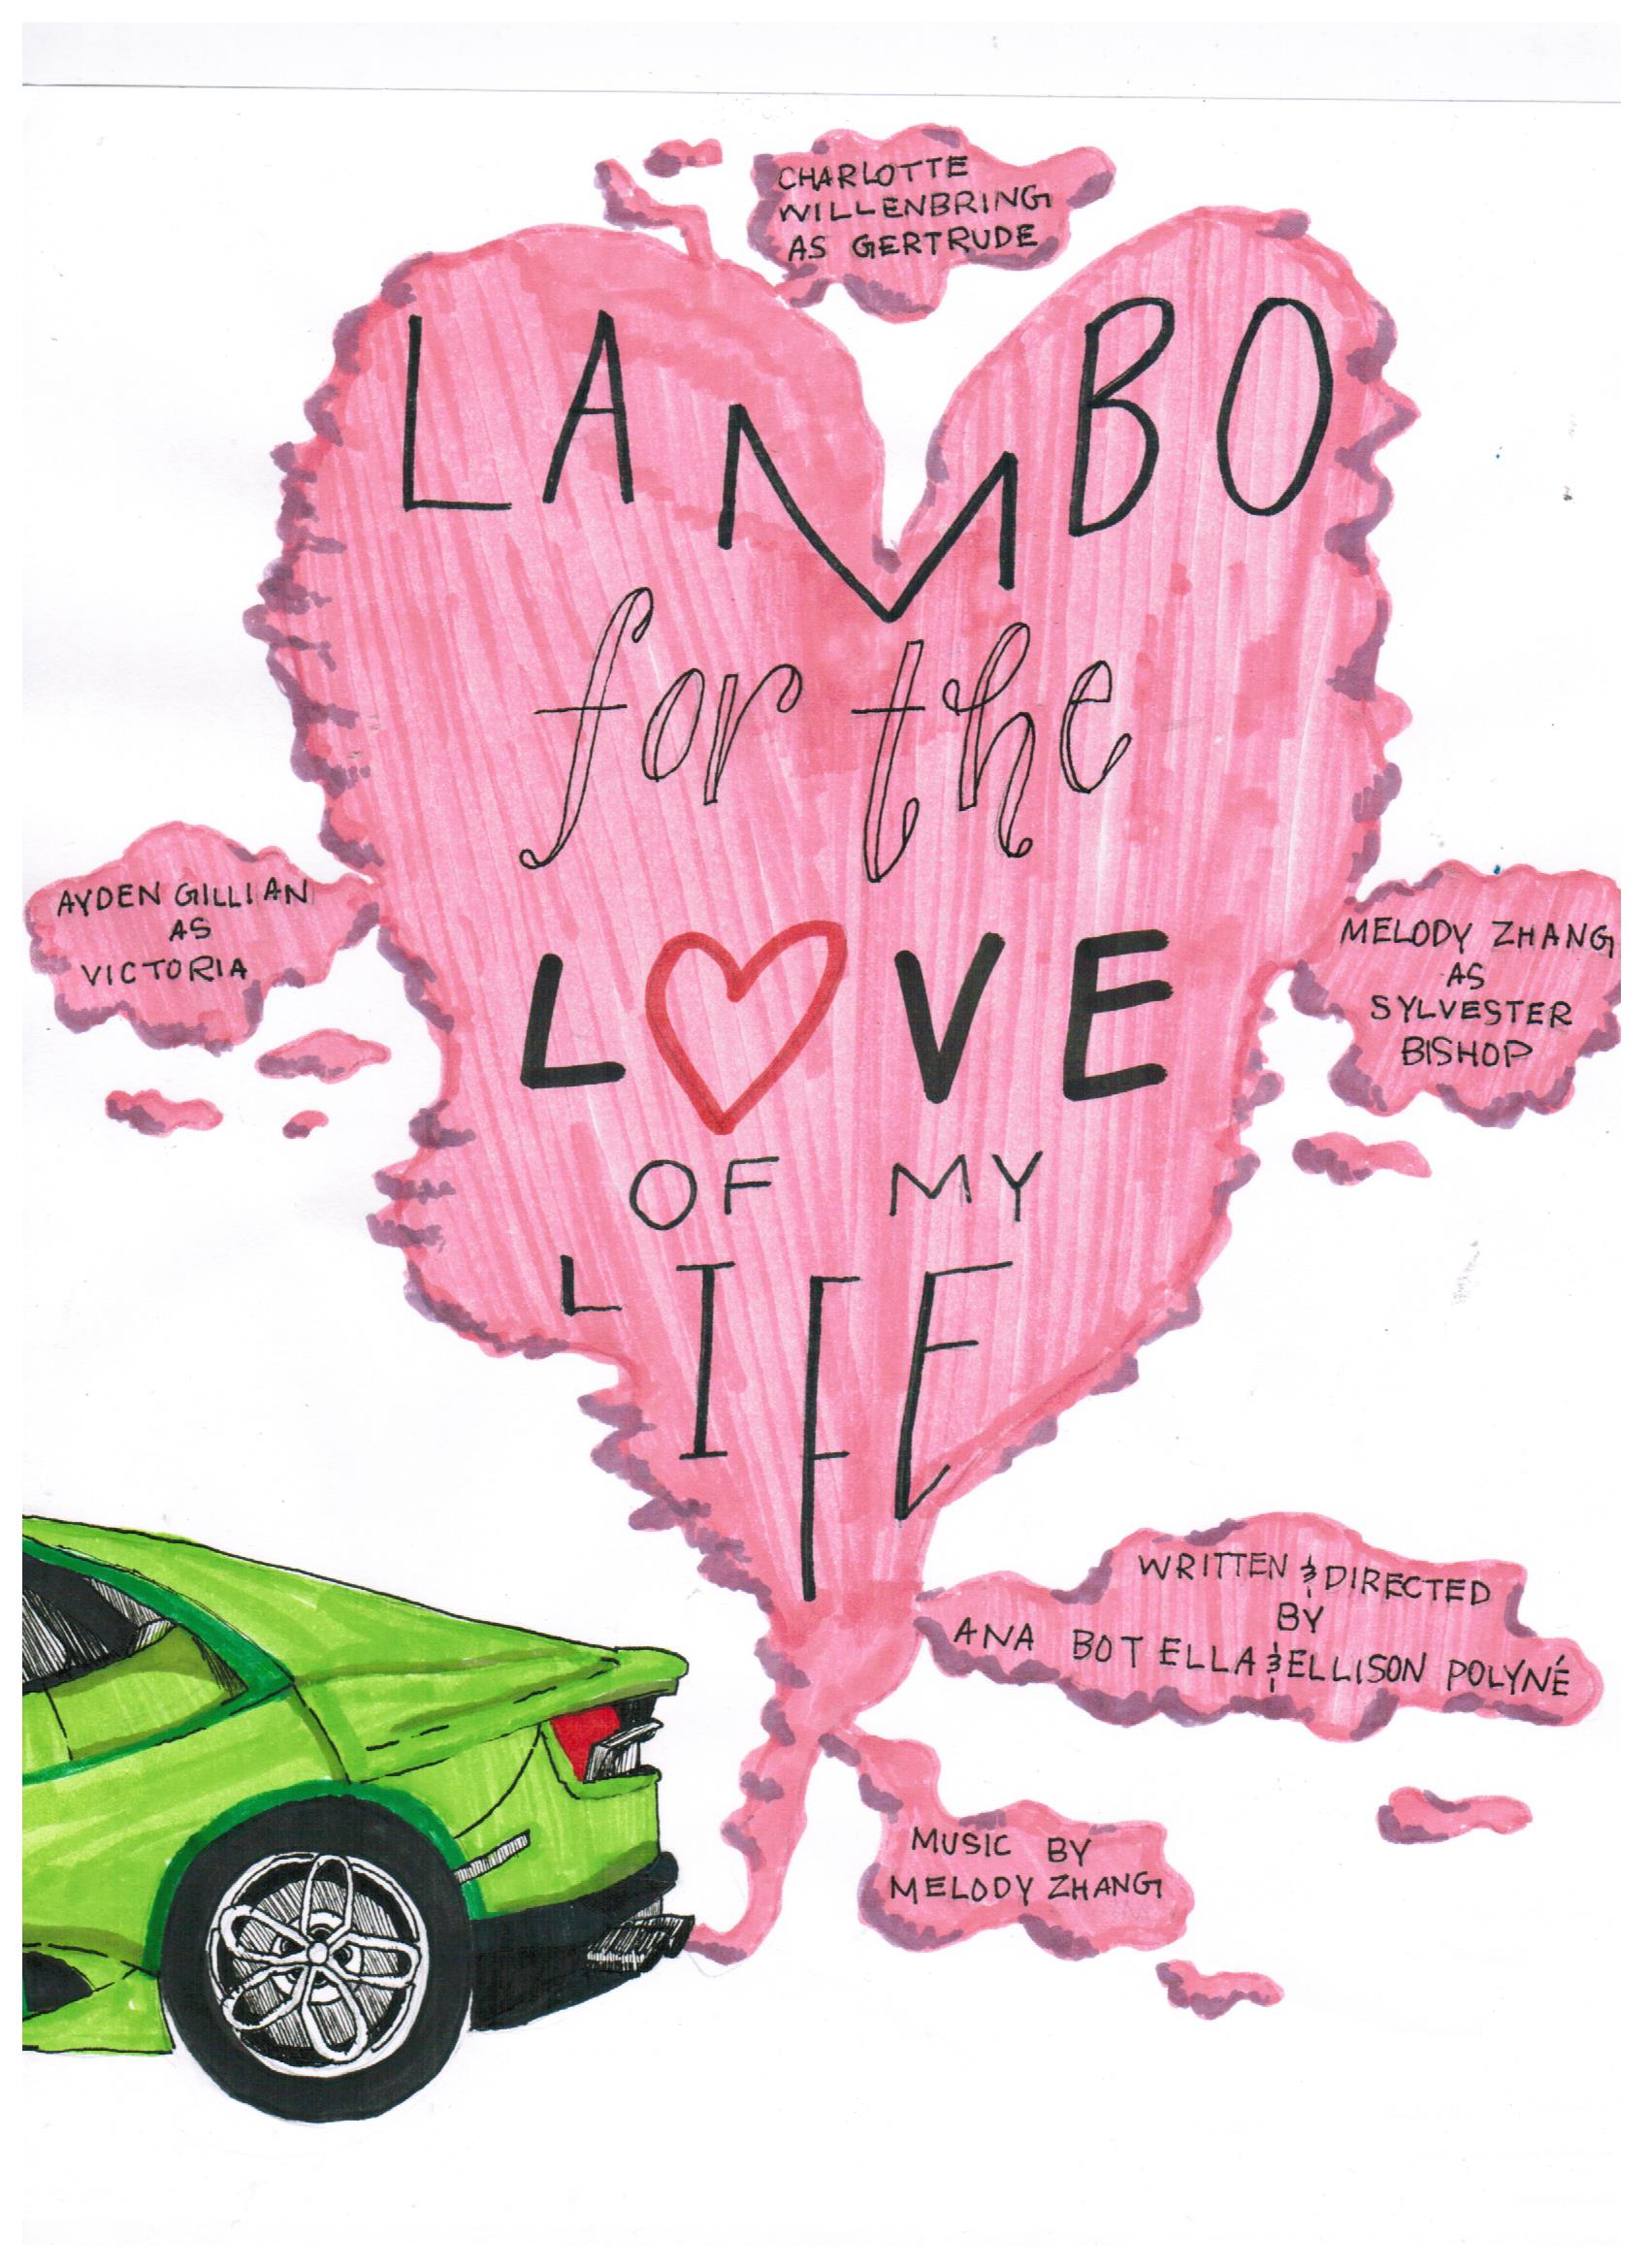 CHARLOTTE
WILLENBRING
AS GERTRUDE
LAMBO
for the
LOVE
OF MY
LIFE
AYDEN GILLIAN
AS
VICTORIA
MELODY ZHANG
AS
SYLVESTER
BISHOP
WRITTEN & DIRECTED
BY
ANA BOTELLA & ELLISON POLYNÉ
MUSIC BY
MELODY ZHANG